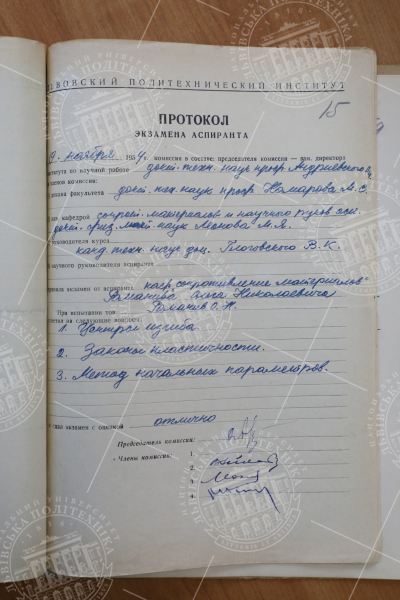 ЬВОВСКИЙ ПОЛИТЕХНИЧЕСКИЙ ИНСТИТУТ
15
ПРОТОКОЛ
ЭКЗАМЕНА АСПИРАНТА
9. ноября 1954г. комиссия в составе: председателя комиссии — зам. директора
института по научной работе докт. техн. наук проф. Андриевского
членов комиссии:
декана факультета докт. тех. наук проф. Комарова М. С.
зав. кафедрой сопрот. материалов и научного руков. асп.
докт. физ. мат. наук Леонова М. Я.
руководителя курса
канд. техн. наук доц. Глоговского В. К.
научного руководителя аспиранта
приняла экзамен от аспиранта каф. „сопротивление материалов"
Романива Олега Николаевича
При испытании тов. Романив О. Н.
отвечал на следующие вопросы:
1. Центры изгиба.
2. Законы пластичности.
3. Метод начальных параметров.
сдал экзамен с оценкой отлично
Председатель комиссии:
Члены комиссии: 1.
2.
3.
4.